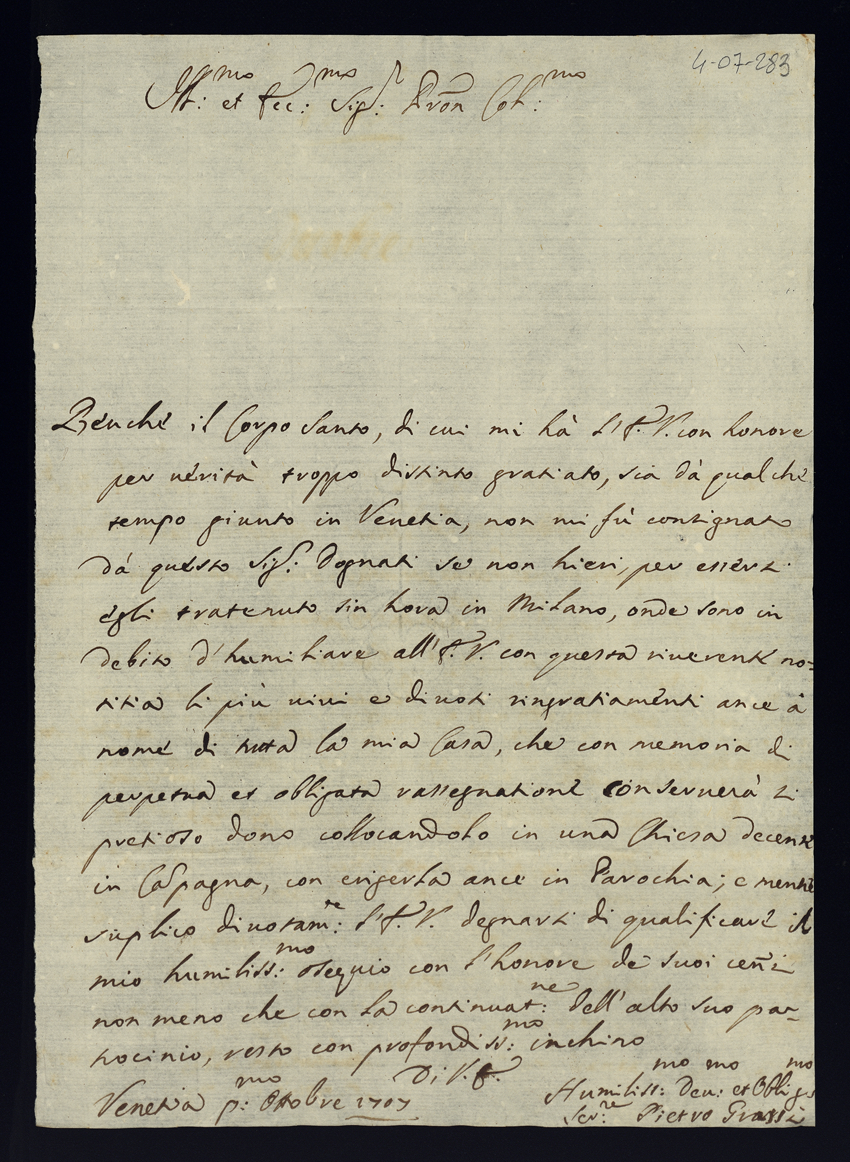 4-07-283
Ill:mo et Ecc:mo Sig:r Pron Col:mo
Benche il Corpo Santo, di cui mi hà l'E.V. con honore
per uerità troppo distinto gratiato, sia dà qualche
tempo giunto in Venetia, non mi fù consignato
dà questo Sig:r Dognati se non hieri, per essersi
egli tratenuto sin hora in Milano, onde sono in
debito d'humiliare all'E.V. con questa riuerente no=
titia li più uiui e diuoti ringratiamenti ance à
nome di tutta la mia Casa, che con memoria di
perpetua et obligata rassegnatione conseruerà si
pretioso dono collocandolo in una Chiesa decente
in Capagna, con erigerla ance in Parochia; e mentre
suplico diuotam:te l'E.V. degnarsi di qualificare il
mio humiliss:mo osequio con l'honore de suoi cenni
non meno che con la continuat:ne dell'alto suo pa-
trocinio, resto con profondiss:mo inchino
Di V.E.
Venetia p:mo Ottobre 1707
Humiliss:mo Deu:mo et Obligmo
Ser:re Pietro Grassi